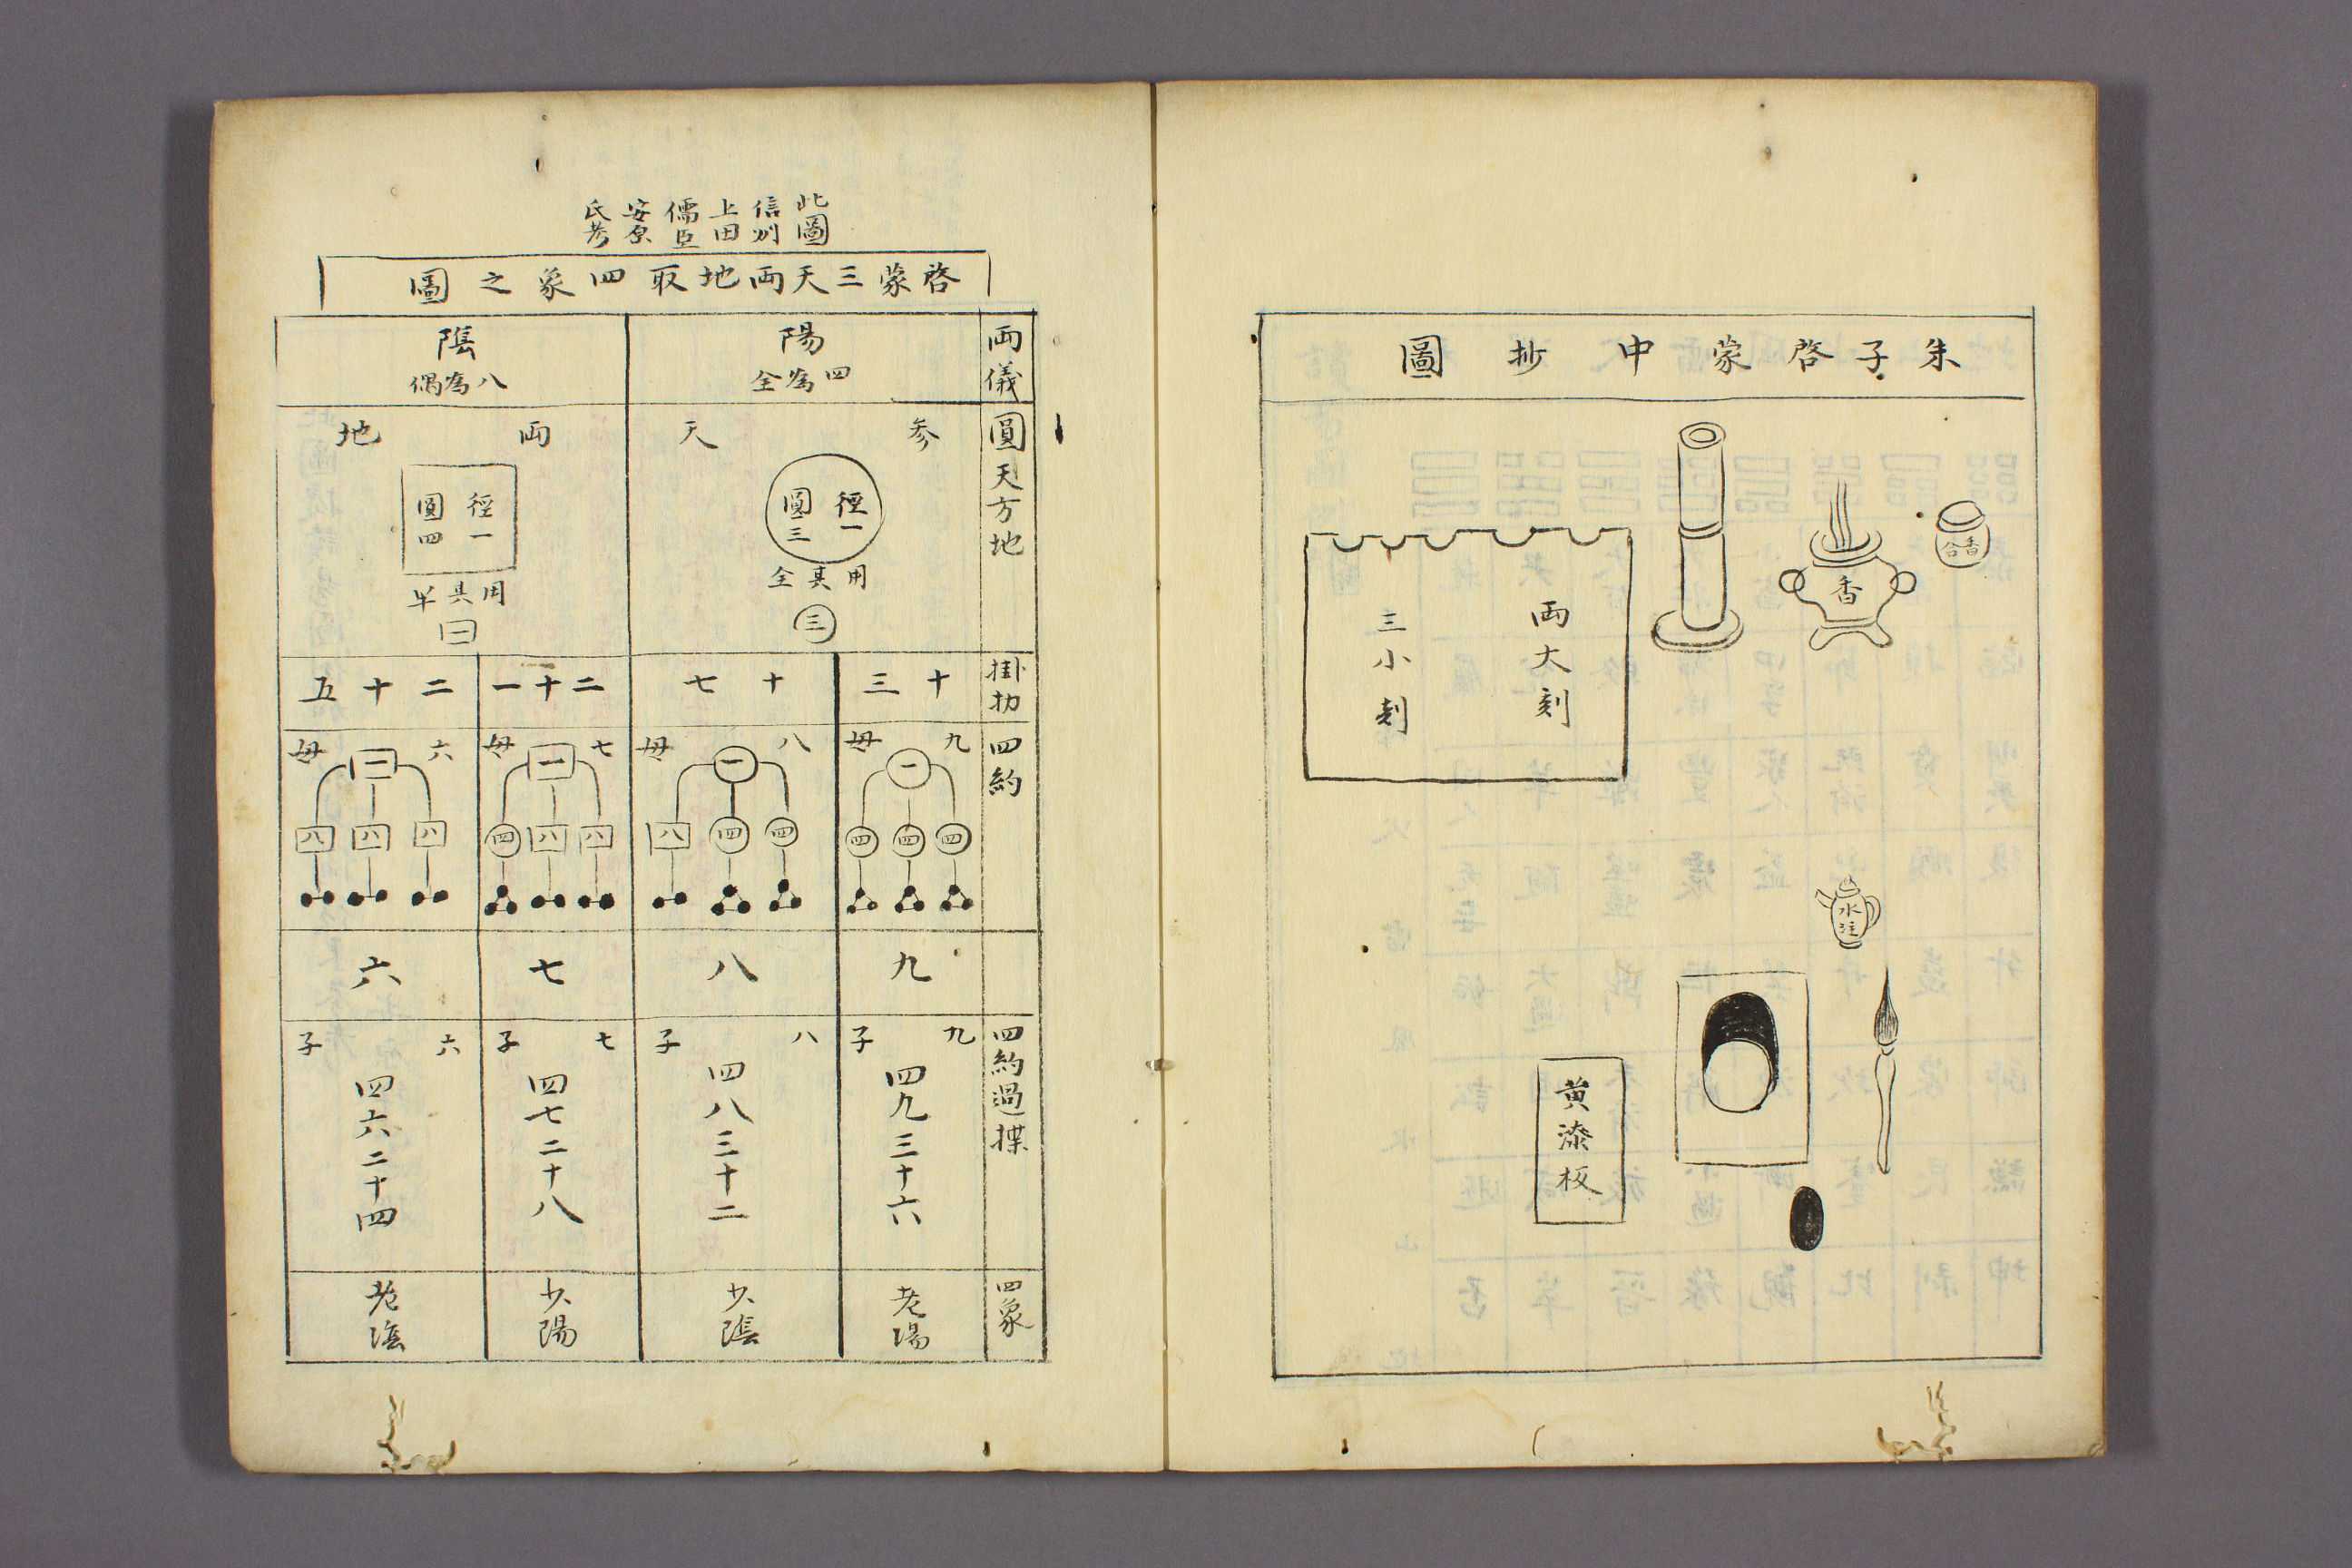 朱子啓蒙中抄圖
香合
香
両大刻
三小刻
水注
黄漆板
此圖
信州
上田
儒臣
安原
氏考
啓蒙三天両地取四象之圖
両儀
陽
四為全
陰
八為偶
圓天方地
参天
徑一
圓三
用其全
三
両地
徑一
圓四
用其半
二
掛扐
十三
十七
二十一
二十五
四約
九母
一
四 四 四
八母
一
四 四 八
七母
一
八 八 四
六母
二
八 八 八
九
八
七
六
四約過揲
九子
四九三十六
八子
四八三十二
七子
四七二十八
六子
四六二十四
四象
老陽
少陰
少陽
老陰